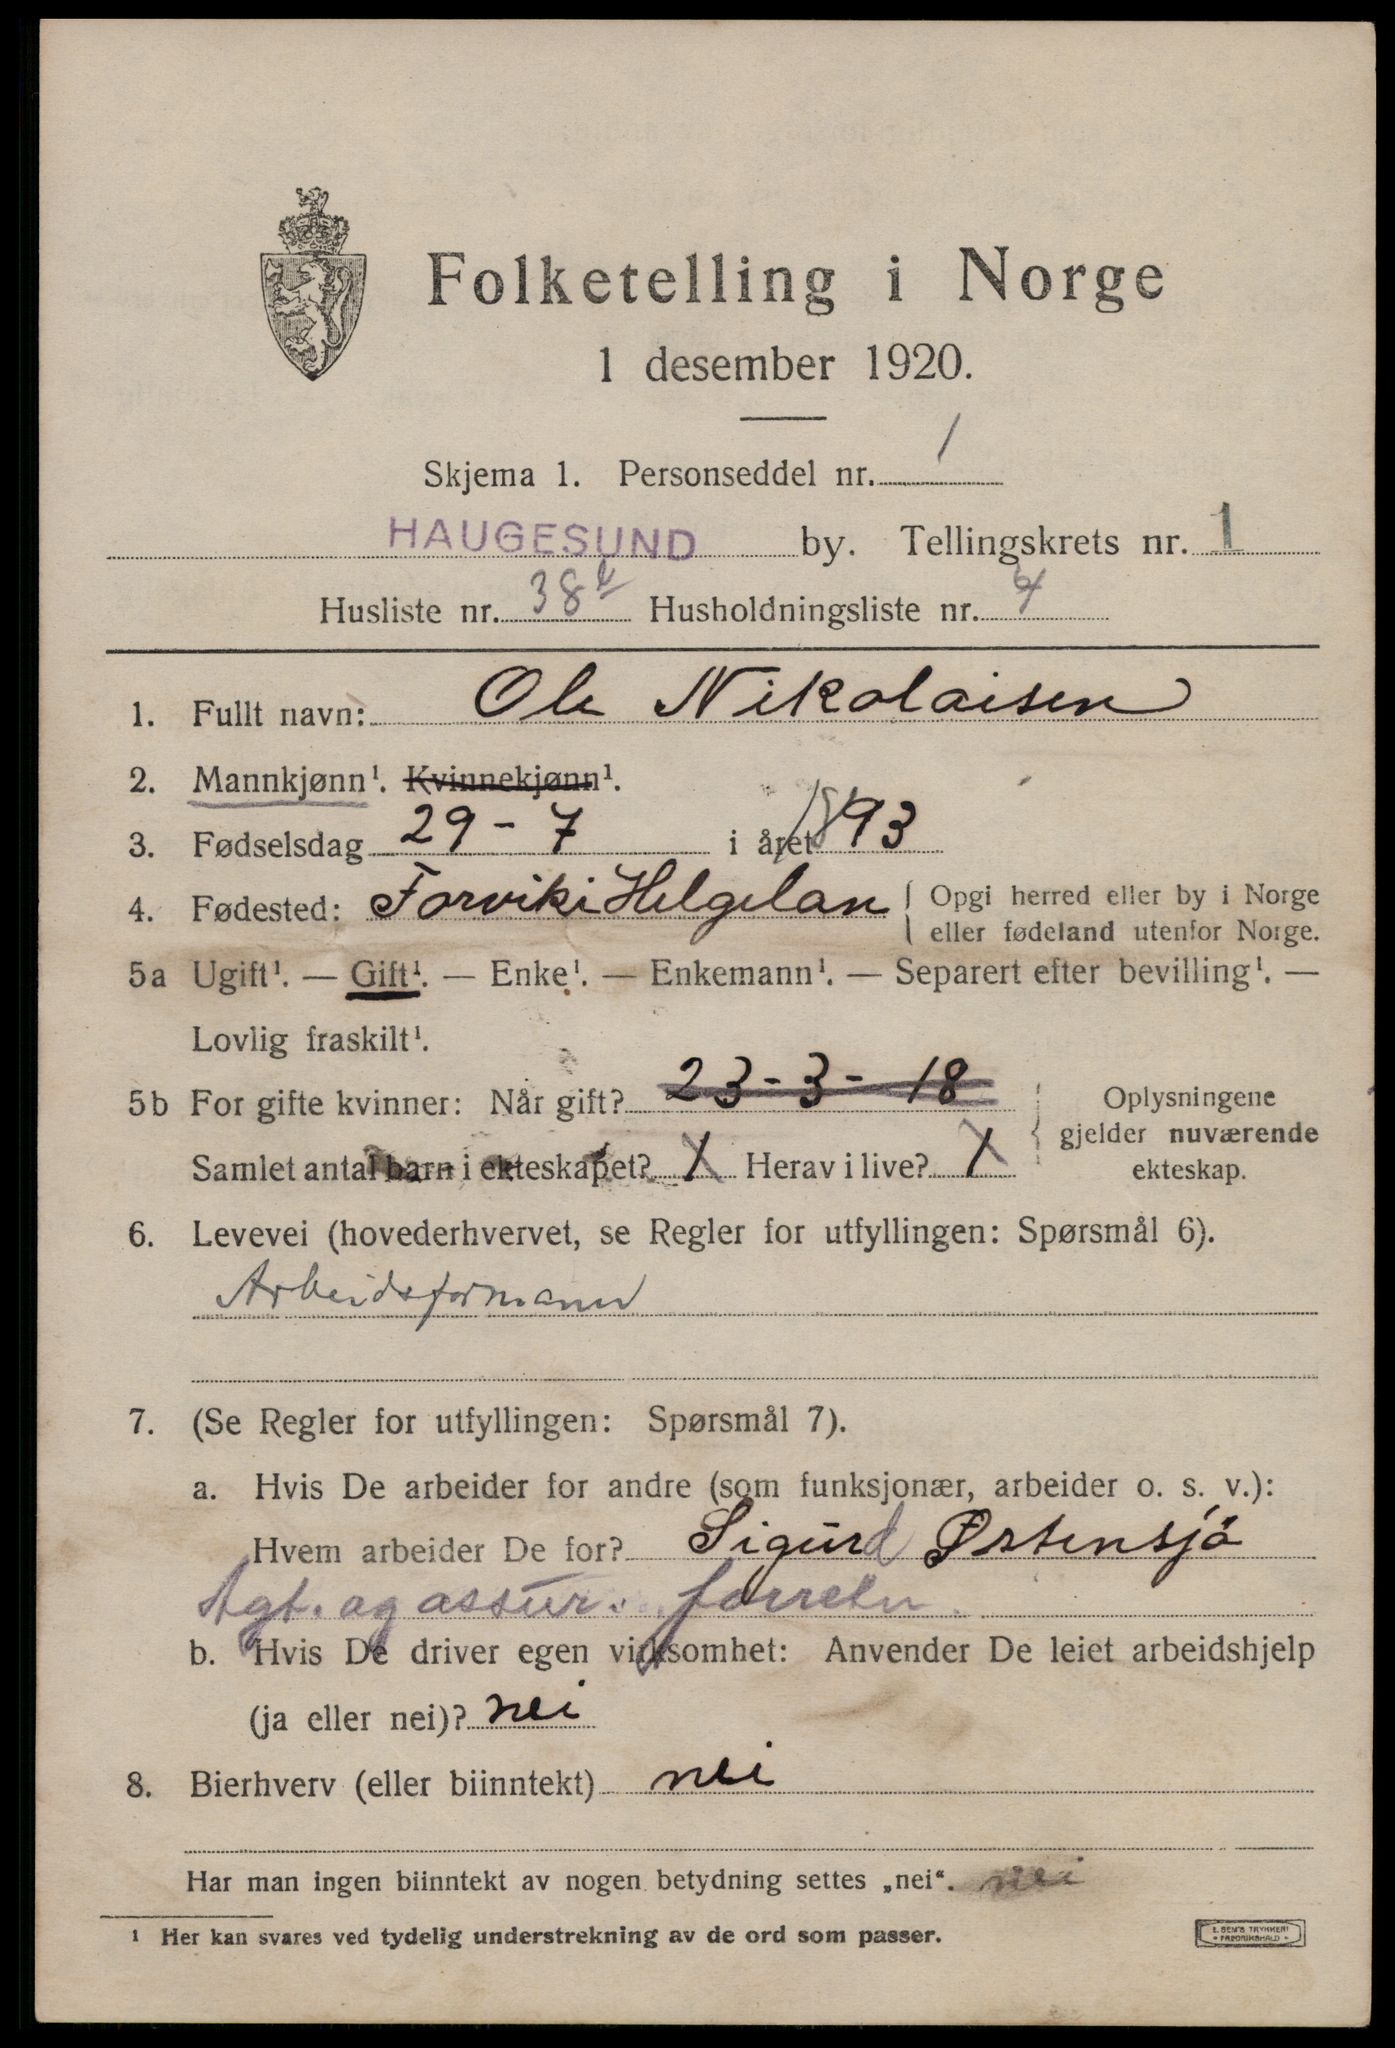 Folketelling i Norge
1 desember 1920.
Skjema 1. Personseddel nr. 1
HAUGESUND by. Tellingskrets nr. 1
Husliste nr. 38 Husholdningsliste nr. 4
1. Fullt navn: Ole Nikolaisen
2. Mannkjønn¹. Kvinnekjønn¹.
3. Fødselsdag 29 - 7 i året 1893
4. Fødested: Forvik i Helgelan { Opgi herred eller by i Norge
eller fødeland utenfor Norge.
5a Ugift¹. — Gift¹. — Enke¹. — Enkemann¹. — Separert efter bevilling¹. —
Lovlig fraskilt¹.
5b For gifte kvinner: Når gift? 23 - 3 - 18 Oplysningene
gjelder nuværende
Samlet antal barn i ekteskapet? 1 Herav i live? 1 ekteskap.
6. Levevei (hovederhvervet, se Regler for utfyllingen: Spørsmål 6).
Arbeidsformann
7. (Se Regler for utfyllingen: Spørsmål 7).
a. Hvis De arbeider for andre (som funksjonær, arbeider o. s. v.):
Hvem arbeider De for? Sigurd Østensjö
Agt. og assur. forretn.
b. Hvis De driver egen virksomhet: Anvender De leiet arbeidshjelp
(ja eller nei)? nei
8. Bierhverv (eller biinntekt) nei
Har man ingen biinntekt av nogen betydning settes „nei“. nei
¹ Her kan svares ved tydelig understrekning av de ord som passer.
E. SEM'S TRYKKERI
• FREDRIKSHALD •